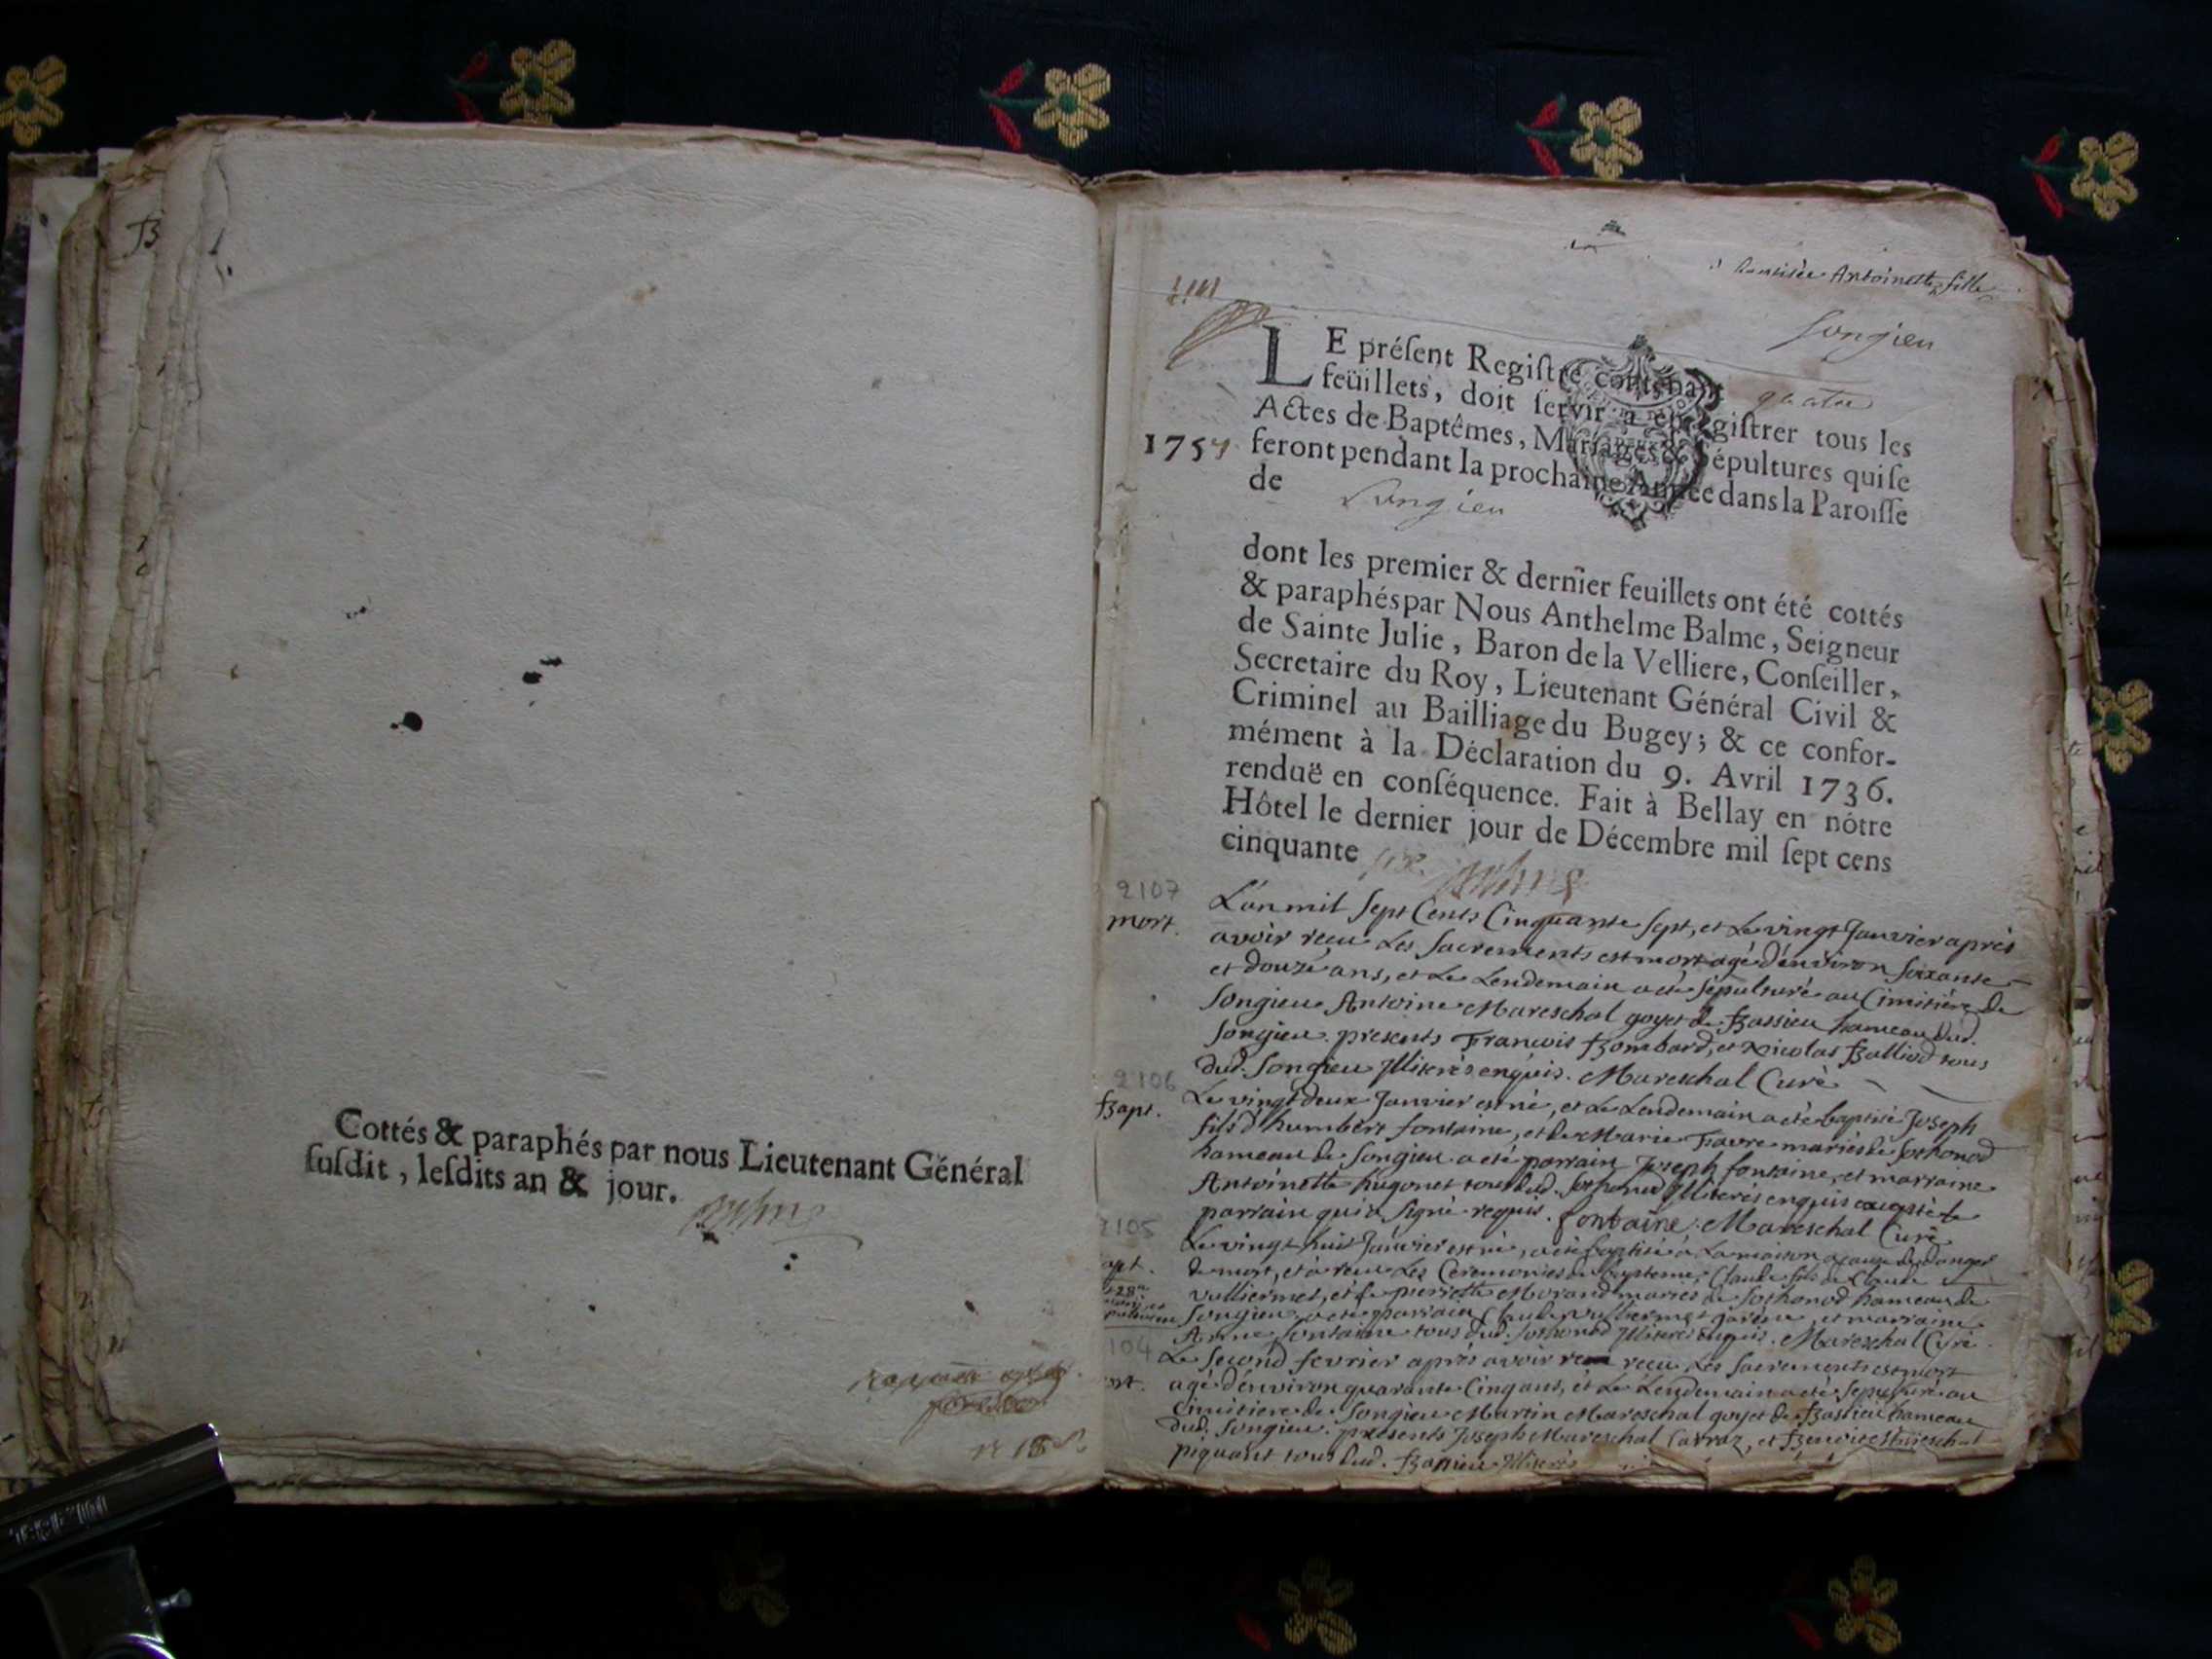 Cottés & paraphés par nous Lieutenant Général
suſdit, leſdits an & jour.
Antoinette fille
Songieu
LE préſent Regiſtre contenant quatre
feüillets, doit ſervir à enregiſtrer tous les
Actes de Baptêmes, Mariages & Sépultures qui ſe
1757 feront pendant la prochaine Année dans la Paroiſſe
de Songieu
dont les premier & dernier feuillets ont été cottés
& paraphés par Nous Anthelme Balme, Seigneur
de Sainte Julie, Baron de la Velliere, Conſeiller,
Secretaire du Roy, Lieutenant Général Civil &
Criminel au Bailliage du Bugey; & ce confor-
mément à la Déclaration du 9. Avril 1736.
renduë en conſéquence. Fait à Bellay en nôtre
Hôtel le dernier jour de Décembre mil ſept cens
cinquante six. Balme
2107
mort.
L'an mil sept Cents Cinquante sept, et Le vingt Janvier après
avoir reçu Les sacrements est mort agé d'environ soixante
et douze ans, et Le Lendemain a été sépulturé au Cimitière de
songieu Antoine Mareschal goyet de Bassieu hameau dud.
songieu. presents François Bombard, et Nicolas Balliod tous
dud. songieu Illiterés enquis. Mareschal Curé
2106
Bapt.
Le vingt deux Janvier est né, et Le Lendemain a été baptisé Joseph
fils d'humbert fontaine, et de Marie Favre mariés de sothonod
hameau de songieu a été parrain Joseph fontaine, et marraine
Antoinette hugonet tous dud. sothonod Illiterés enquis excepté le
parrain qui a signé requis. fontaine. Mareschal Curé
2105
Le vingt huit Janvier est né, a été baptisé à La maison a cause de danger
de mort, et a reçu Les Ceremonies du bapteme, Claude fils de Claude
vulliermet, et de pierrette Morand mariés de sothonod hameau de
songieu. a été parrain Claude vulliermet, et marraine
Anne fontaine tous dud. sothonod Illiterés enquis. Mareschal Curé.
104
Le second fevrier après avoir reçu Les sacrements est mort
agé d'environ quarante Cinq ans, et Le Lendemain a été sepulturé au
Cimitiere de songieu Martin Mareschal goyet de Bassieu hameau
dud. songieu. presents Joseph Mareschal Carraz, et Benoit Mareschal
piquant tous dud. Bassieu Illiterés